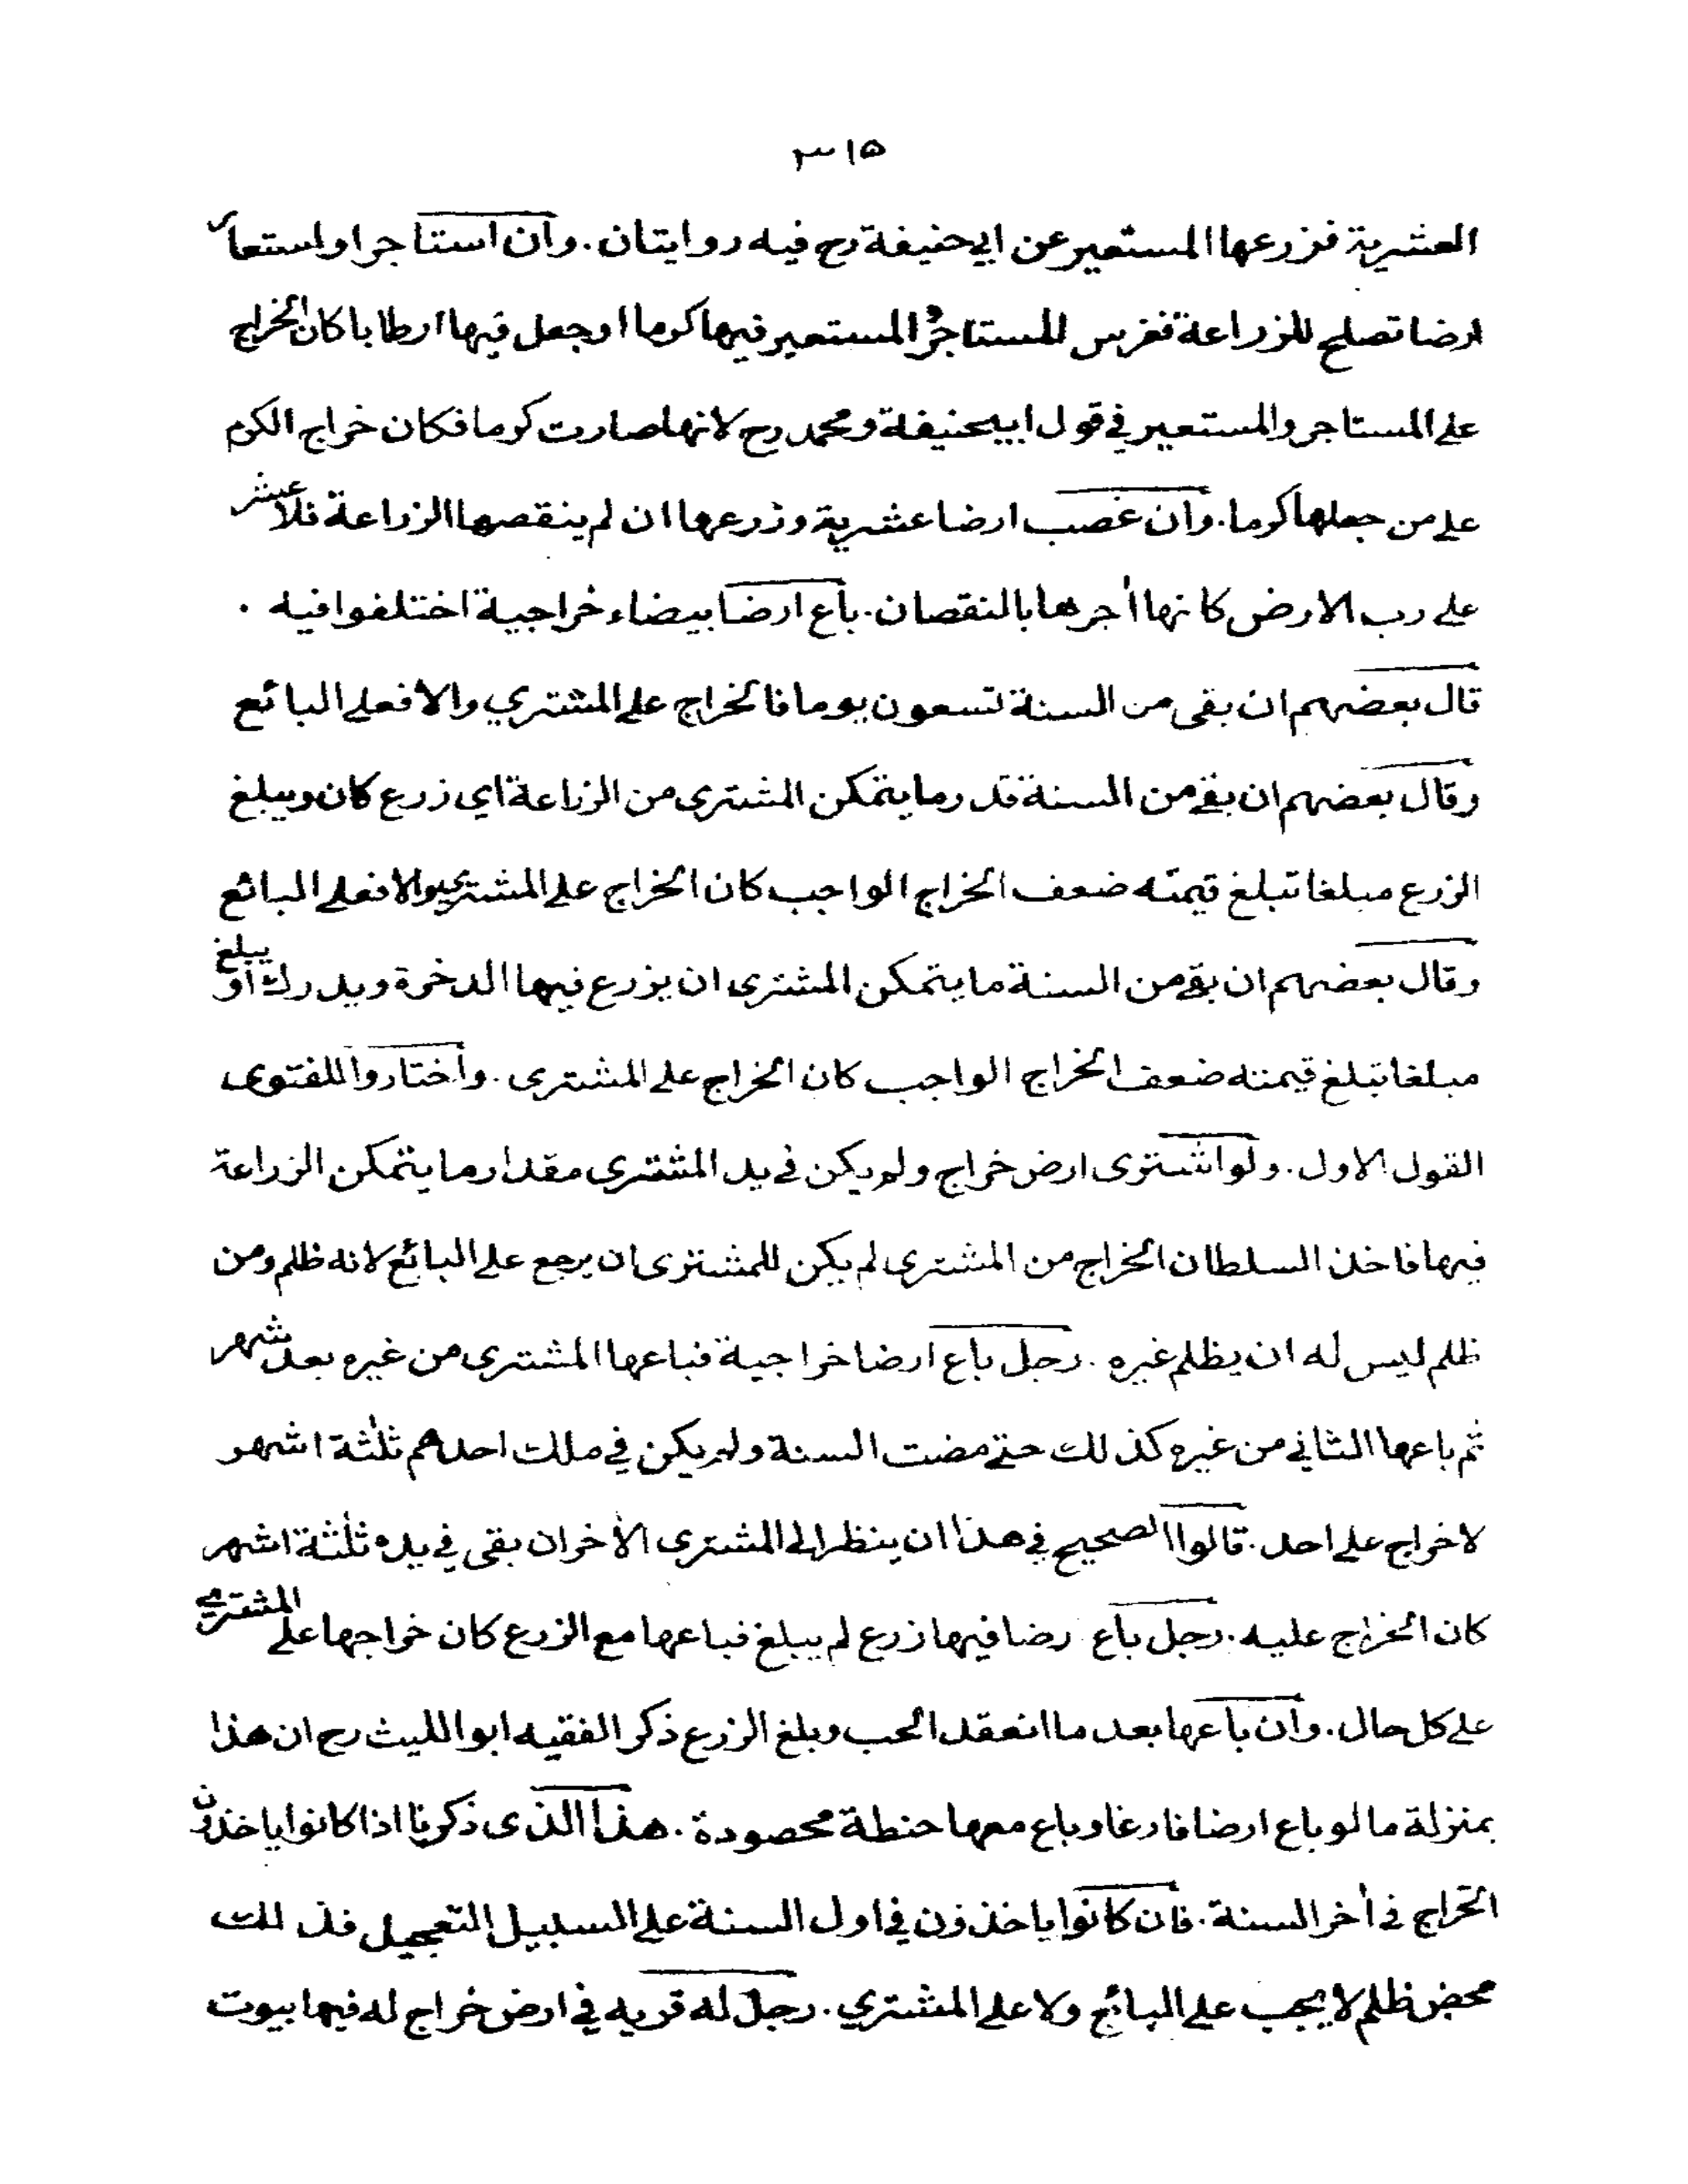 ٣١٥
العشرية فزرعها المستعير عن ابي حنيفة رح فيه روايتان. وان استاجر او استعار
ارضا تصلح للزراعة فغرس المستاجر او المستعير فيها كرما او جعل فيها ارطابا كان الخراج
على المستاجر والمستعير في قول ابيحنيفة ومحمد رح لانها صارت كرما فكان خراج الكرم
على من جعلها كرما. وان غصب ارضا عشرية وزرعها ان لم ينقصها الزراعة فلا عشر
على رب الارض كانها اٰجرها بالنقصان. باع ارضا بيضاء خراجية اختلفوا فيه .
قال بعضهم ان بقى من السنة تسعون يوما فالخراج على المشتري والا فعلى البائع
وقال بعضهم ان بقى من السنة قدر ما يتمكن المشترى من الزراعة اي زرع كان ويبلغ
الزرع مبلغا تبلغ قيمته ضعف الخراج الواجب كان الخراج على المشتري والا فعلى البائع
وقال بعضهم ان بقى من السنة ما يتمكن المشترى ان يزرع فيها الدخرة ويدرك او يبلغ
مبلغا تبلغ قيمته ضعف الخراج الواجب كان الخراج على المشترى . واختاروا للفتوى
القول الاول . ولو اشترى ارض خراج ولم يكن في يد المشترى مقدار ما يتمكن الزراعة
فيها فاخذ السلطان الخراج من المشترى لم يكن للمشترى ان يرجع على البائع لانه ظلم ومن
ظلم ليس له ان يظلم غيره . رجل باع ارضا خراجية فباعها المشترى من غيره بعد شهر
ثم باعها الثاني من غيره كذلك حتى مضت السنة ولم يكن في ملك احدهم ثلٰثة اشهر
لاخراج على احد . قالوا الصحيح في هذا ان ينظر الى المشترى الاٰخر ان بقى في يده ثلٰثة اشهر
كان الخراج عليه . رجل باع رضا فيها زرع لم يبلغ فباعها مع الزرع كان خراجها على المشترى
على كل حال . وان باعها بعد ما انعقد الحب وبلغ الزرع ذكر الفقيه ابو الليث رح ان هذا
بمنزلة ما لو باع ارضا فارغا وباع معها حنطة محصودة . هذا الذى ذكرنا اذا كانوا ياخذون
الخراج في اٰخر السنة . فان كانوا ياخذون في اول السنة على السبيل التعجيل فذلك
محض ظلم لا يجب على البائع ولا على المشتري . رجل له قريه في ارض خراج له فيها بيوت